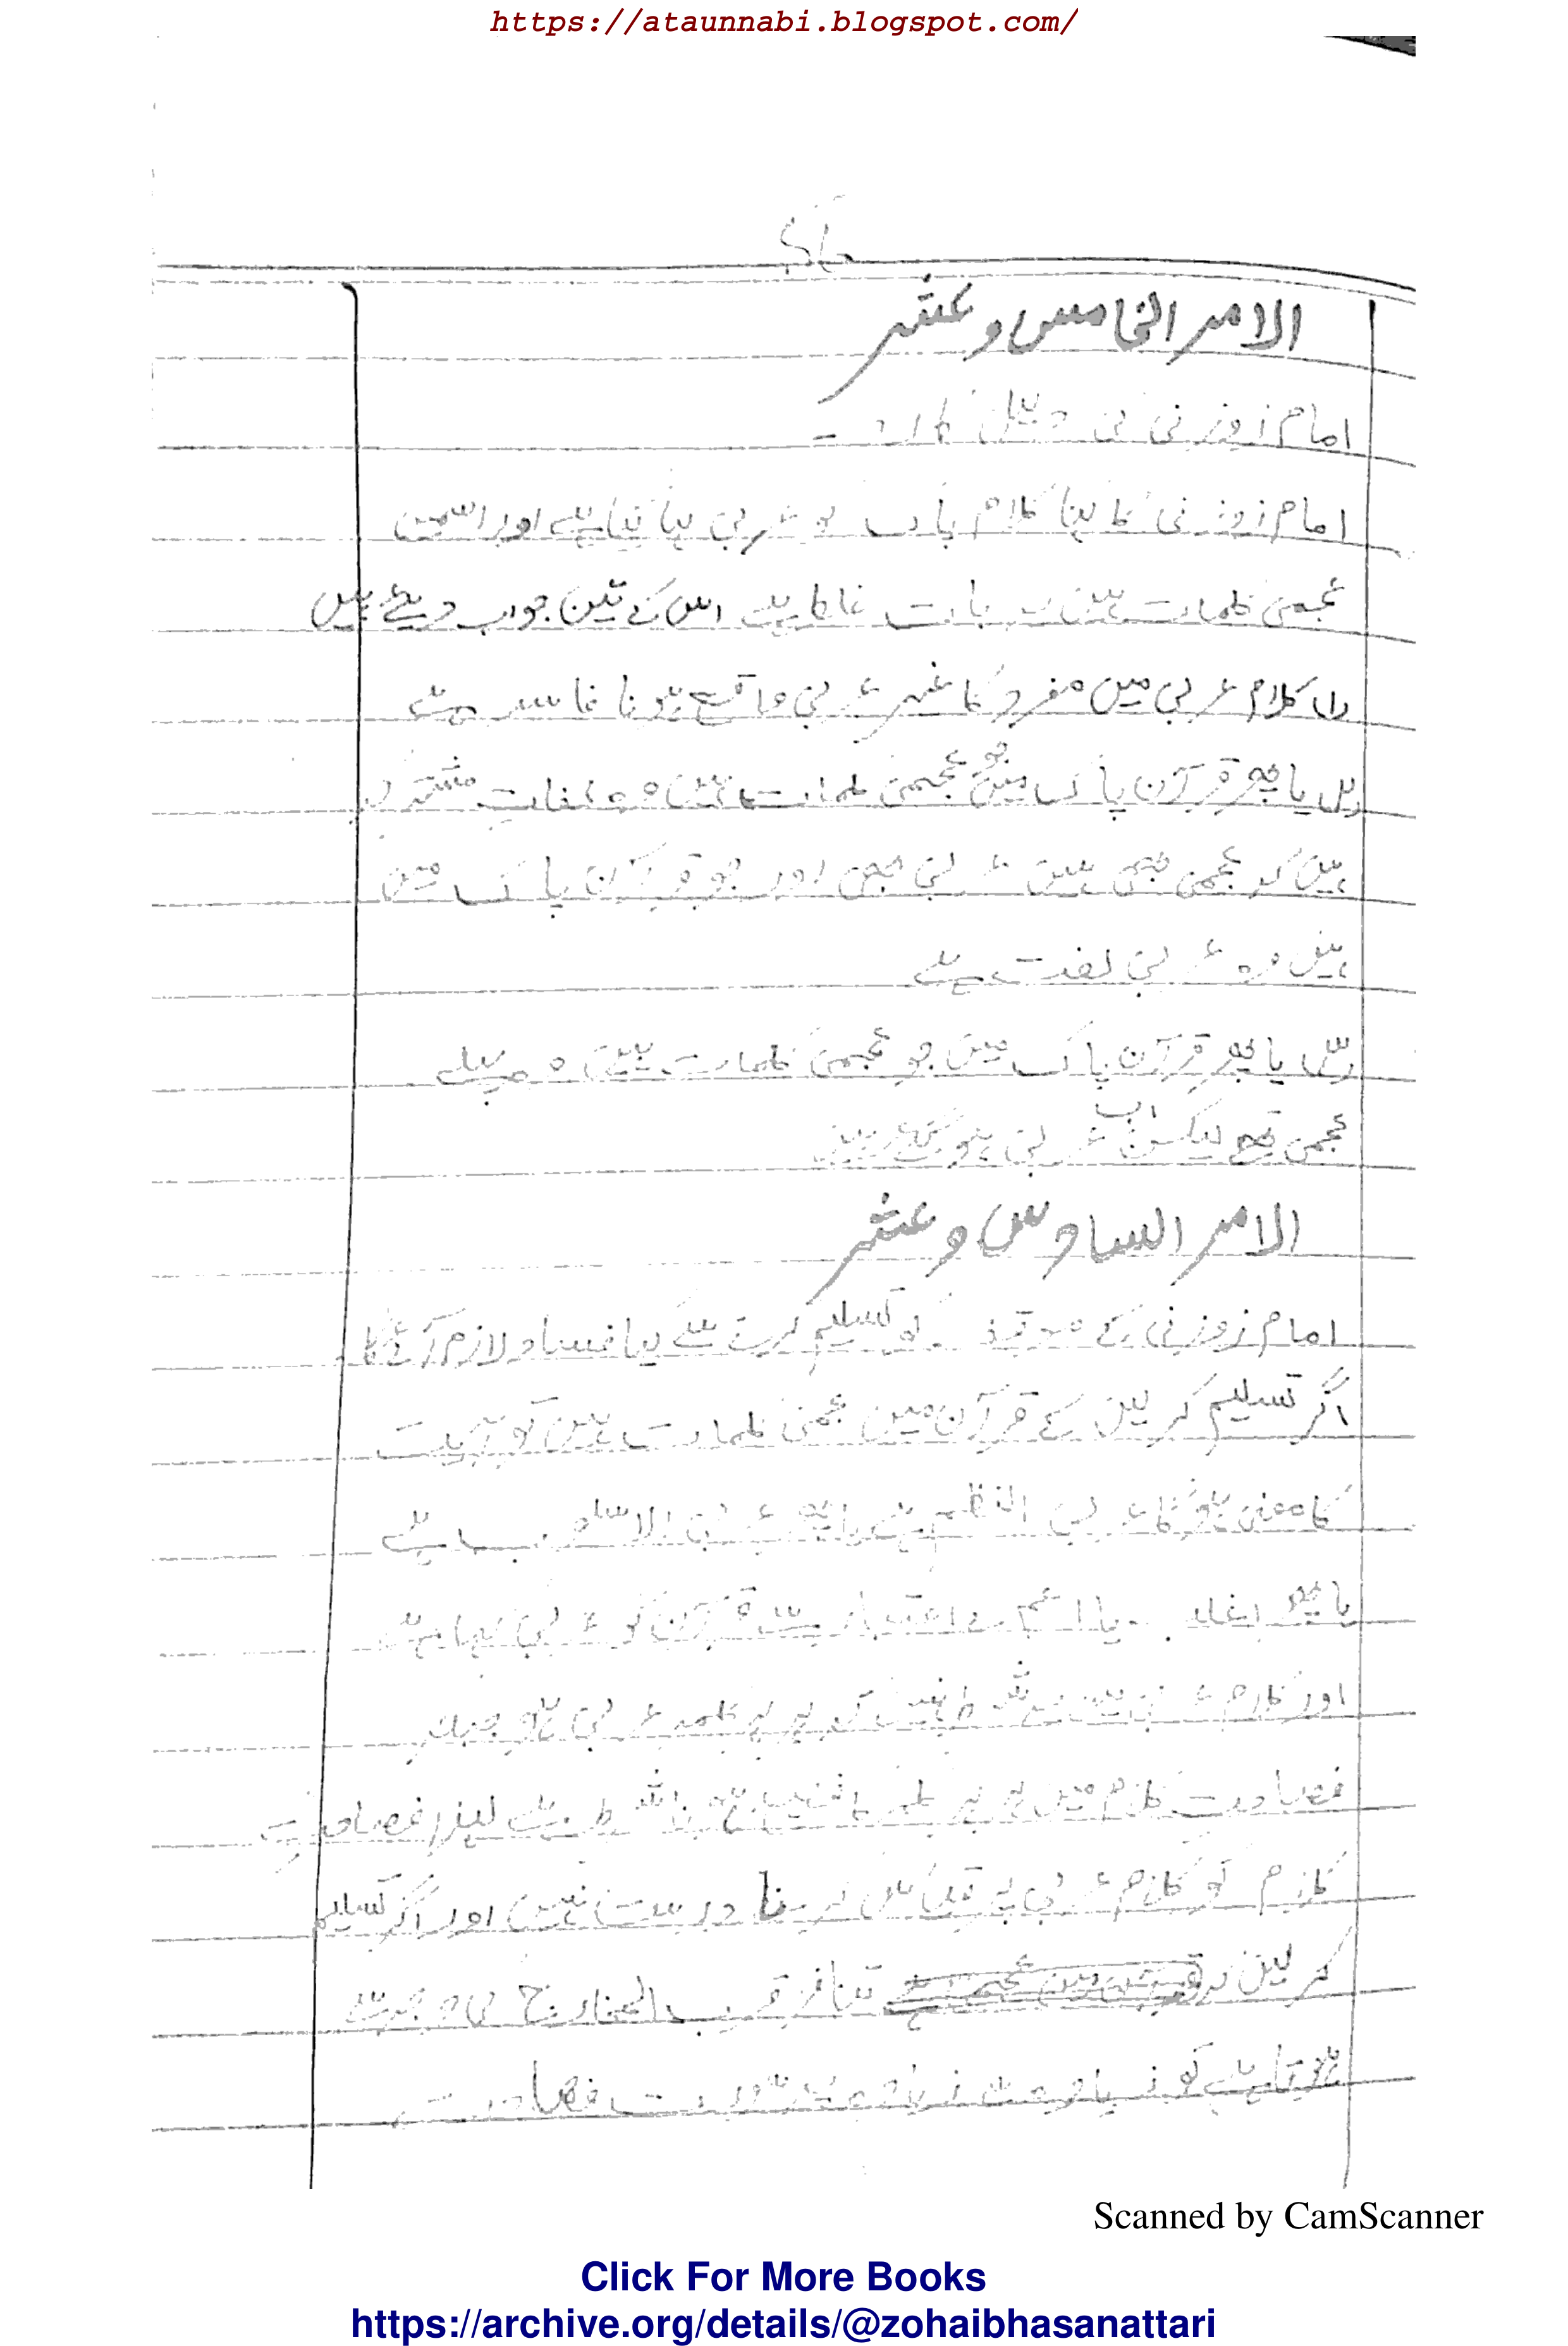 https://ataunnabi.blogspot.com/
الامر الخامس و عشر
امام زوزنی کی دلیل کا رد -
امام زوزنی کا کہنا کلام پاک کو عربی کہا گیا ہے اور اسمیں
عجمی کلمات ہیں یہ بات غلط ہے اس کے تین جواب دیئے ہیں
کلام عربی میں مفرد کا غیر عربی واقع ہونا فاسد ہے
یا پھر قرآن پاک میں جو عجمی کلمات ہیں وہ لغات مشترک
ہیں کہ عجمی بھی ہیں عربی بھی اور جو قرآن پاک میں
ہیں وہ عربی لغت ہے
یا پھر قرآن پاک میں جو عجمی کلمات ہیں وہ پہلے
عجمی تھے لیکن اب عربی ہو گئے ہیں
الامر السادس و عشر
امام زوزنی کے موقف کو تسلیم کرنے سے کیا فساد لازم آئے گا
اگر تسلیم کر لیں کے قرآن میں عجمی کلمات ہیں تو آیت
کا معنی ہوگا عربی النظم ہے یا پھر عربی الاسلوب ہے
یا پھر اغلب یا اعم اعتبار سے قرآن کو عربی کہا ہے
اور کلام عربی میں شرط نہیں کہ ہر ہر کلمہ عربی ہو جبکہ
فصاحت کلام میں ہر ہر کلمہ کا فصیح ہونا شرط ہے لہذا فصاحت
کلام کو کلام عربی پر قیاس کرنا درست نہیں اور اگر تسلیم
کر لیں تنافر قرب المخارج کی وجہ سے
ہوتا ہے تو فصاحت
Scanned by CamScanner
Click For More Books
https://archive.org/details/@zohaibhasanattari